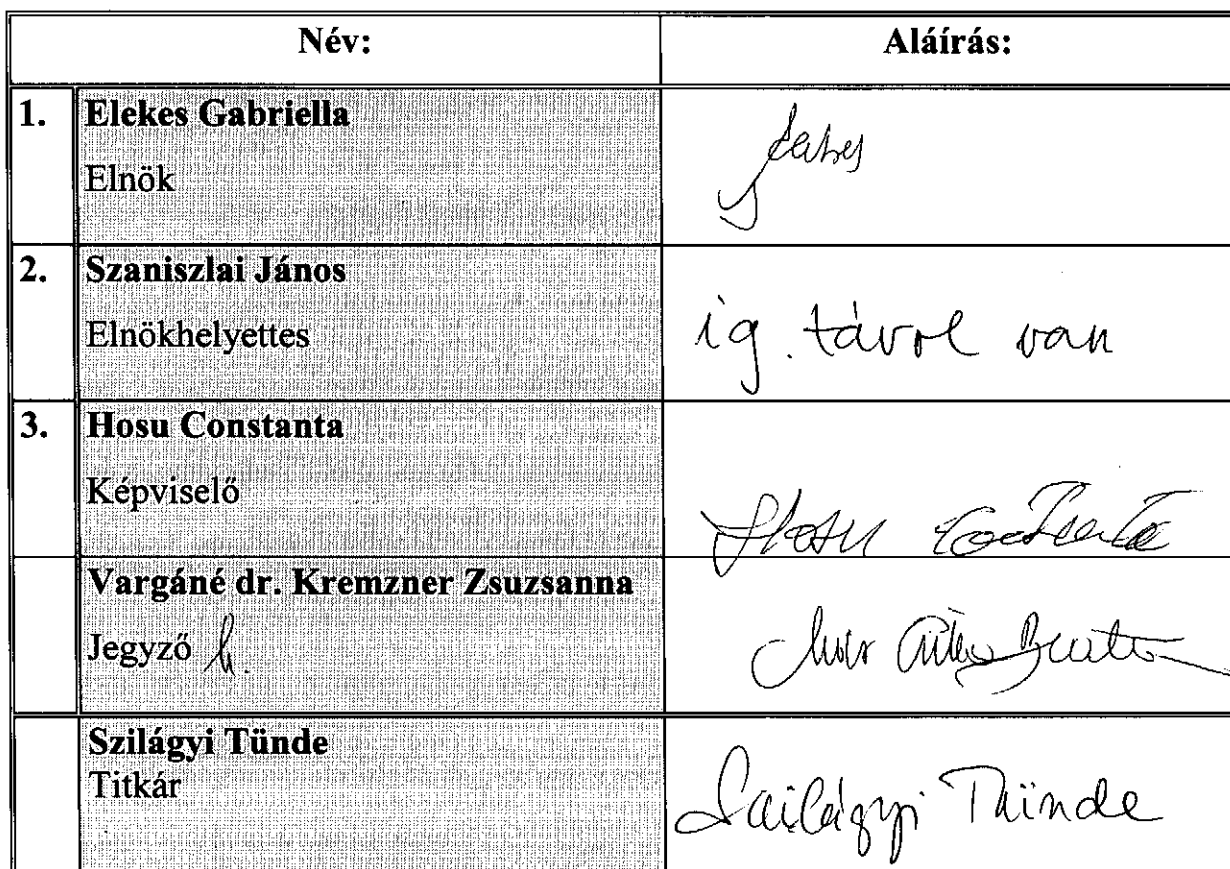 Név: Aláírás:
1. Elekes Gabriella
Elnök
2. Szaniszlai János
Elnökhelyettes
ig. távol van
3. Hosu Constanta
Képviselő
Hosu
Vargáné dr. Kremzner Zsuzsanna
Jegyző h.
Szilágyi Tünde
Titkár
Szilágyi Tünde